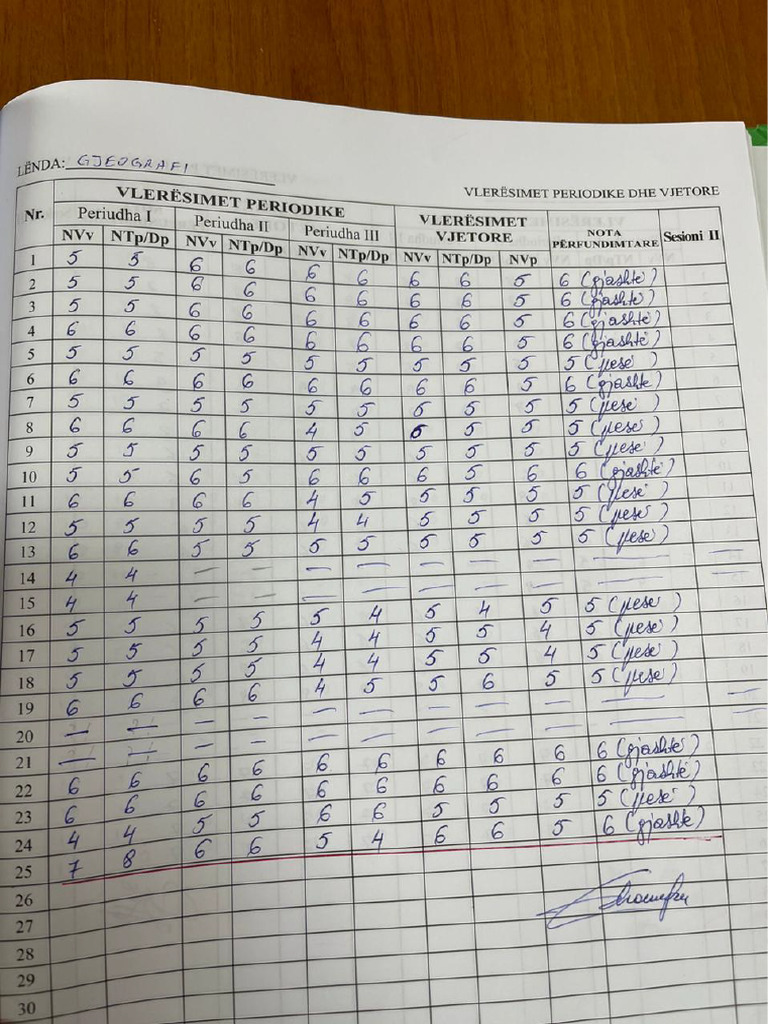 LËNDA: GJEOGRAFI
VLERËSIMET PERIODIKE DHE VJETORE
Nr. VLERËSIMET PERIODIKE VLERËSIMET VJETORE NOTA PËRFUNDIMTARE Sesioni II
Periudha I Periudha II Periudha III
NVv NTp/Dp NVv NTp/Dp NVv NTp/Dp NVv NTp/Dp NVp
1 5 5 6 6 6 6 6 6 5 6 (gjashtë)
2 5 5 6 6 6 6 6 6 5 6 (gjashtë)
3 5 5 6 6 6 6 6 6 5 6 (gjashtë)
4 6 6 6 6 6 6 6 6 5 6 (gjashtë)
5 5 5 5 5 5 5 5 5 5 5 (pesë)
6 6 6 6 6 6 6 6 6 5 6 (gjashtë)
7 5 5 5 5 5 5 5 5 5 5 (pesë)
8 6 6 6 6 4 5 5 5 5 5 (pesë)
9 5 5 5 5 5 5 5 5 5 5 (pesë)
10 5 5 6 5 6 6 6 5 6 6 (gjashtë)
11 6 6 6 6 4 5 5 5 5 5 (pesë)
12 5 5 5 5 4 4 5 5 5 5 (pesë)
13 6 6 5 5 5 5 5 5 5 5 (pesë)
14 4 4 — — — — — — — — —
15 4 4 — — — — — — — — —
16 5 5 5 5 5 4 5 4 5 5 (pesë)
17 5 5 5 5 4 4 5 5 4 5 (pesë)
18 5 5 5 5 4 4 5 5 4 5 (pesë)
19 6 6 6 6 4 5 5 6 5 5 (pesë)
20 — — — — — — — — — — —
21 — — — — — — — — — — —
22 6 6 6 6 6 6 6 6 6 6 (gjashtë)
23 6 6 6 6 6 6 6 6 6 6 (gjashtë)
24 4 4 5 5 6 6 5 5 5 5 (pesë)
25 7 8 6 6 5 4 6 6 5 6 (gjashtë)
26
27
28
29
30